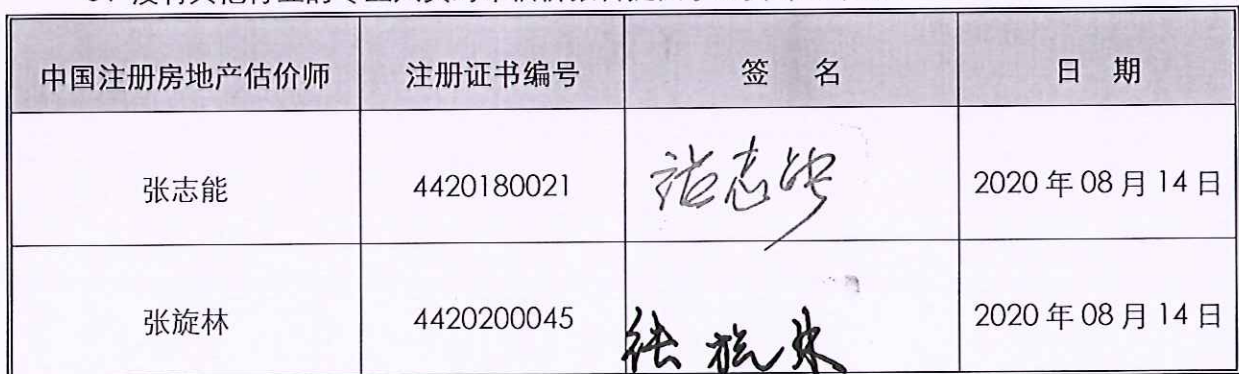 中国注册房地产估价师 注册证书编号 签 名 日 期
张志能 4420180021 张志能 2020 年 08 月 14 日
张旋林 4420200045 张旋林 2020 年 08 月 14 日